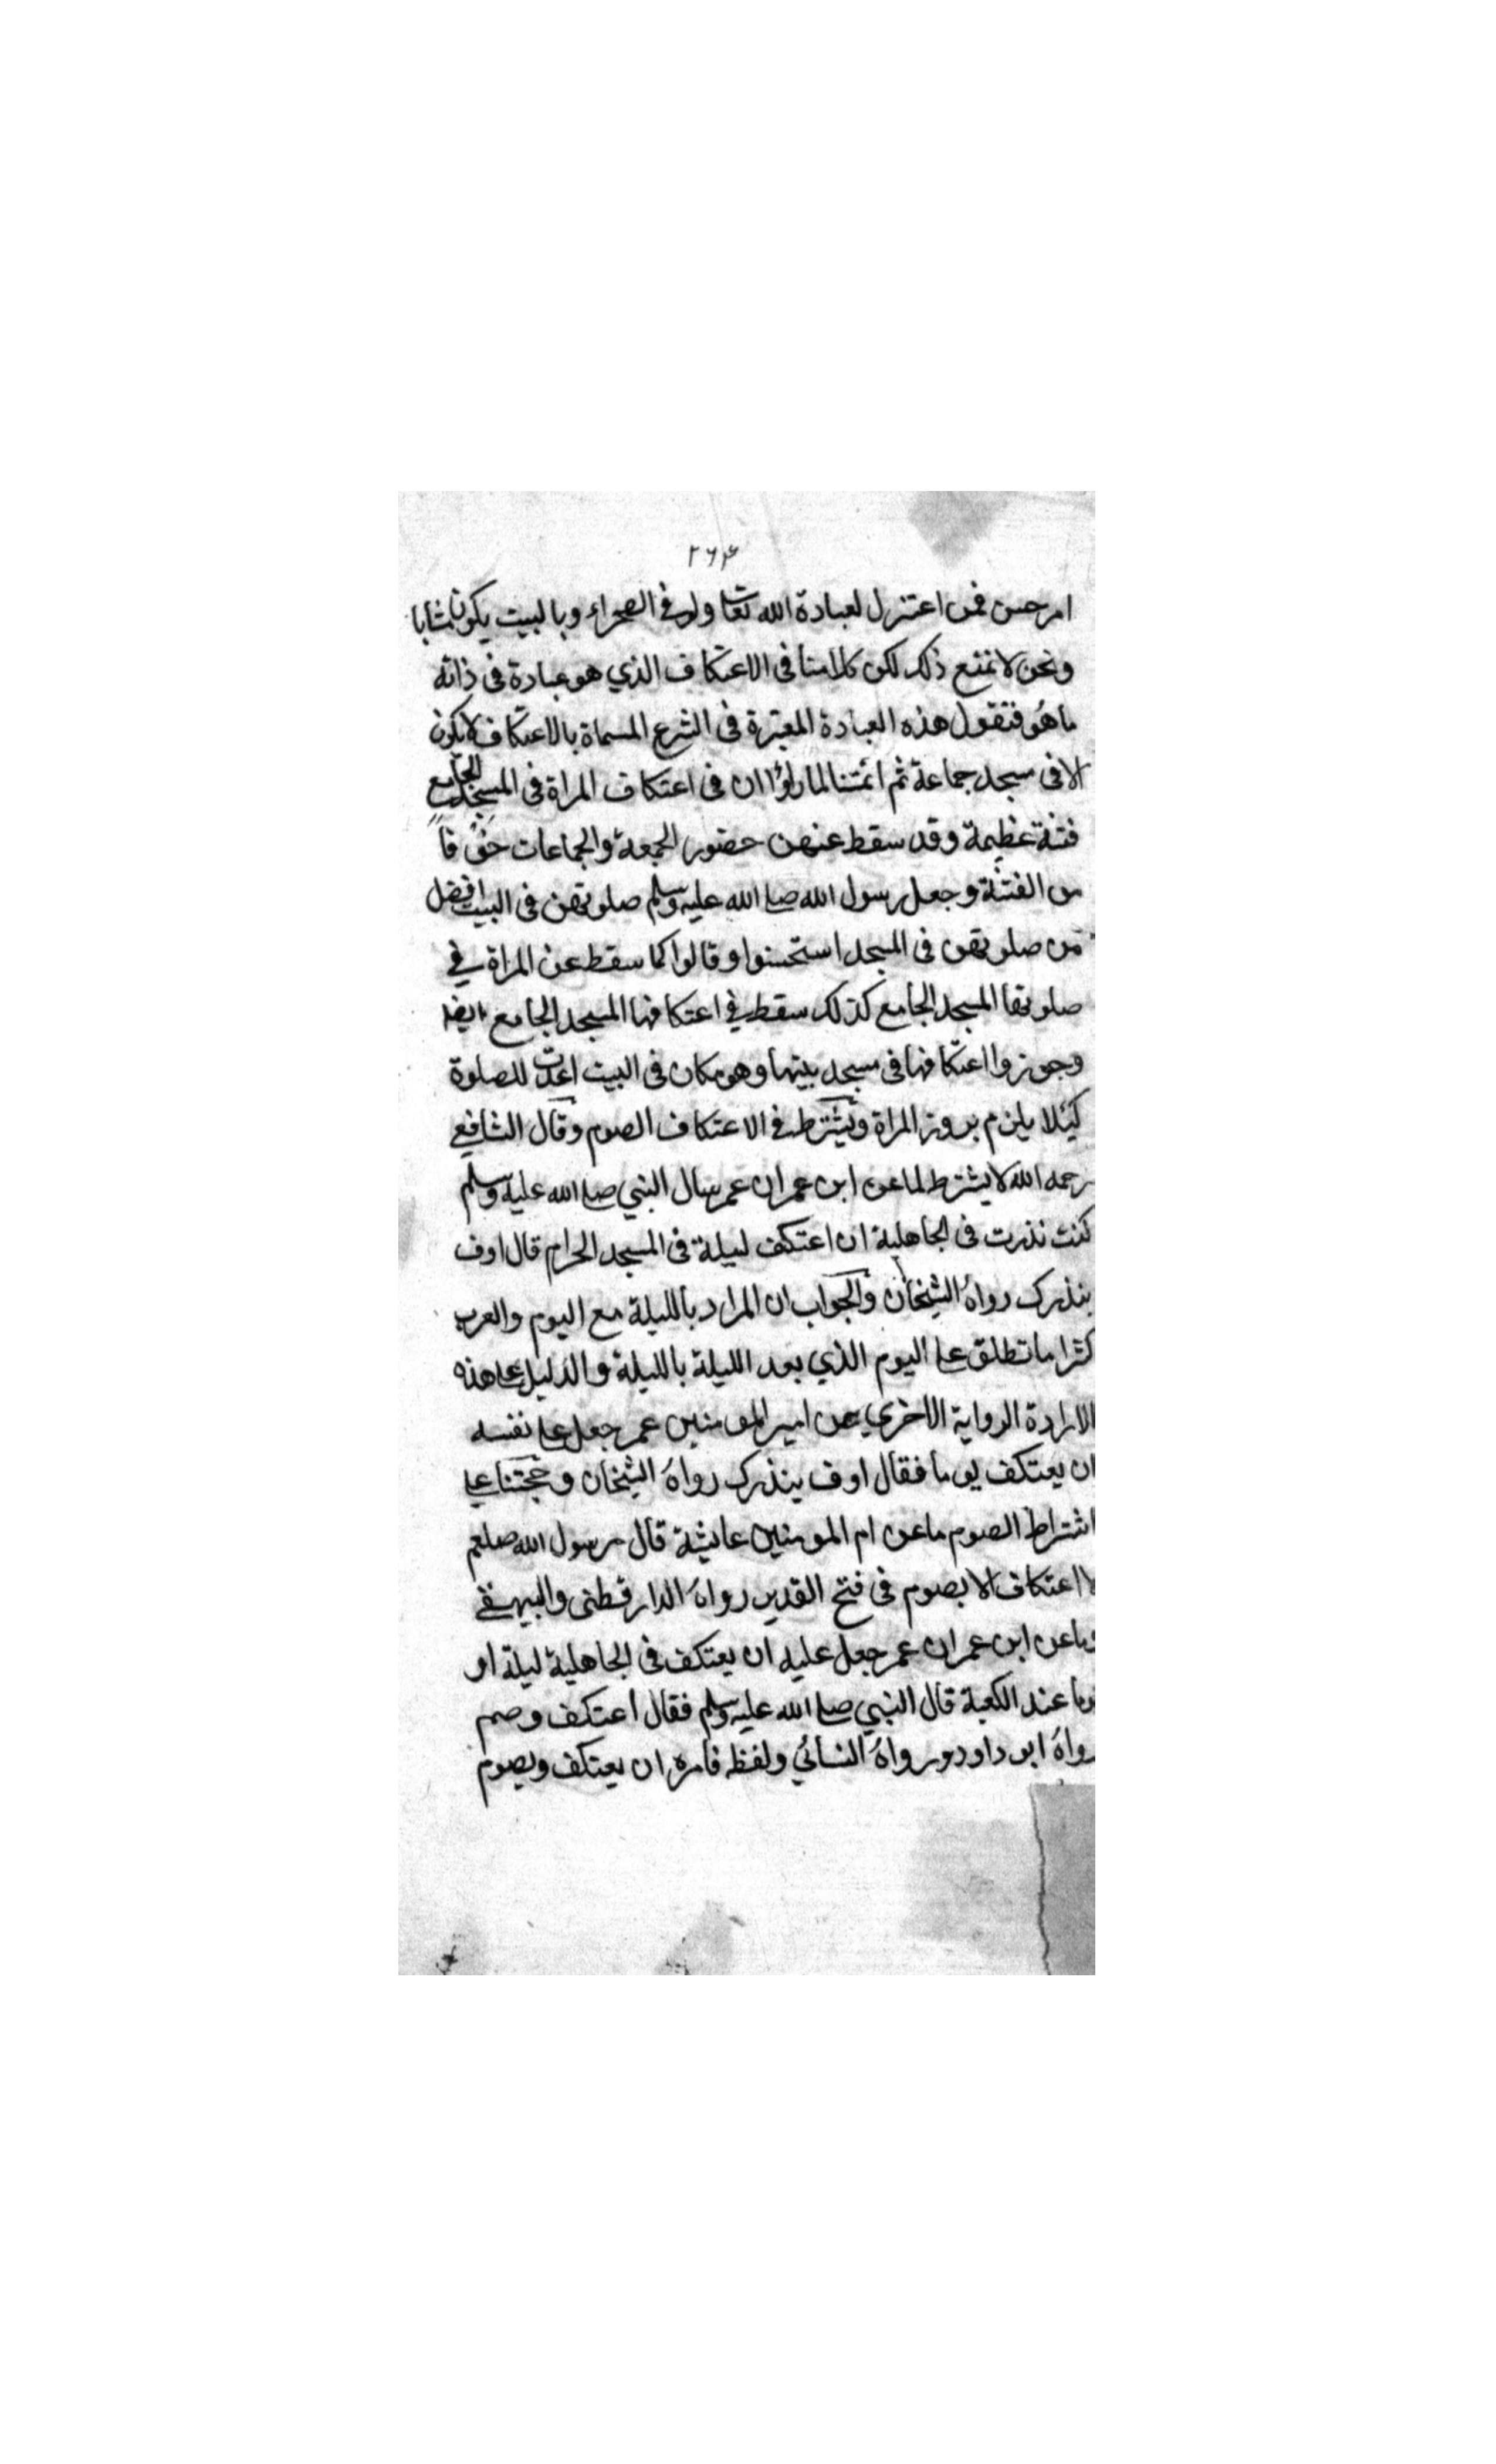 ۲۶۴
امر حسن فمن اعتزل لعبادة الله تعالى ولو في الصحراء وبالبيت يكون مثابا
ونحن لا نمنع ذلك لكن كلامنا في الاعتكاف الذي هو عبادة في ذاته
ما هو فنقول هذه العبادة المعتبرة في الشرع المسماة بالاعتكاف لا يكون
الا في مسجد جماعة ثم ائمتنا لما راوا ان في اعتكاف المراة في المسجد الجامع
فتنة عظيمة وقد سقط عنهن حضور الجمعة والجماعات خوفا
من الفتنة وجعل رسول الله صلى الله عليه وسلم صلوتهن في البيت افضل
من صلوتهن في المسجد استحسنوا وقالوا كما سقط عن المراة في
صلوتها المسجد الجامع كذلك سقط في اعتكافها المسجد الجامع ايضا
وجوزوا اعتكافها في مسجد بيتها وهو مكان في البيت اعدت للصلوة
كيلا يلزم بروز المراة ويشترط في الاعتكاف الصوم وقال الشافعي
رحمه الله لا يشترط لما عن ابن عمر ان عمر سال النبي صلى الله عليه وسلم
كنت نذرت في الجاهلية ان اعتكف ليلة في المسجد الحرام قال اوف
بنذرك رواه الشيخان والجواب ان المراد بالليلة مع اليوم والعرب
كثرا ما تطلق على اليوم الذي بعد الليلة بالليلة والدليل على هذه
الارادة الرواية الاخرى عن امير المومنين عمر جعل على نفسه
ان يعتكف يوما فقال اوف بنذرك رواه الشيخان وحجتنا على
اشتراط الصوم ما عن ام المومنين عائشة قال رسول الله صلعم
لا اعتكاف الا بصوم في فتح القدير رواه الدارقطنى والبيهقي
وما عن ابن عمر ان عمر جعل عليه ان يعتكف في الجاهلية ليلة او
يوما عند الكعبة قال النبي صلى الله عليه وسلم فقال اعتكف وصم
رواه ابو داود ورواه النسائي ولفظه فامره ان يعتكف ويصوم